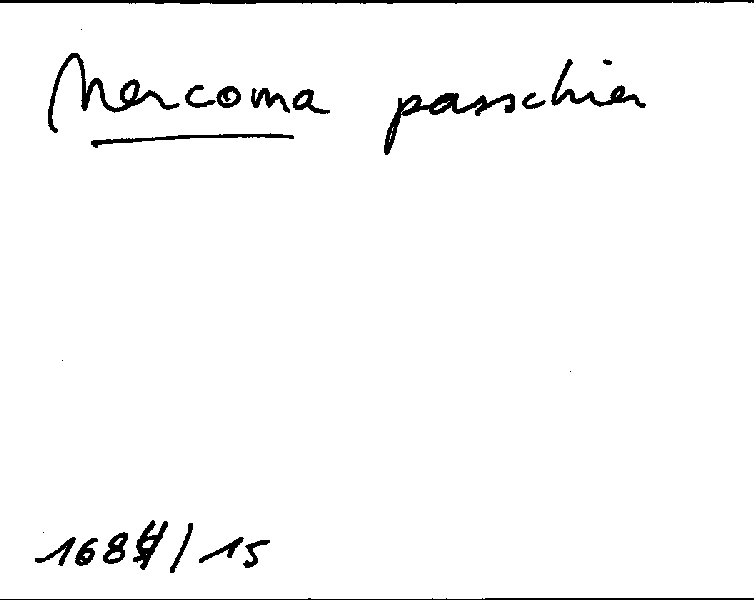 Mercoma passchier
1684/15